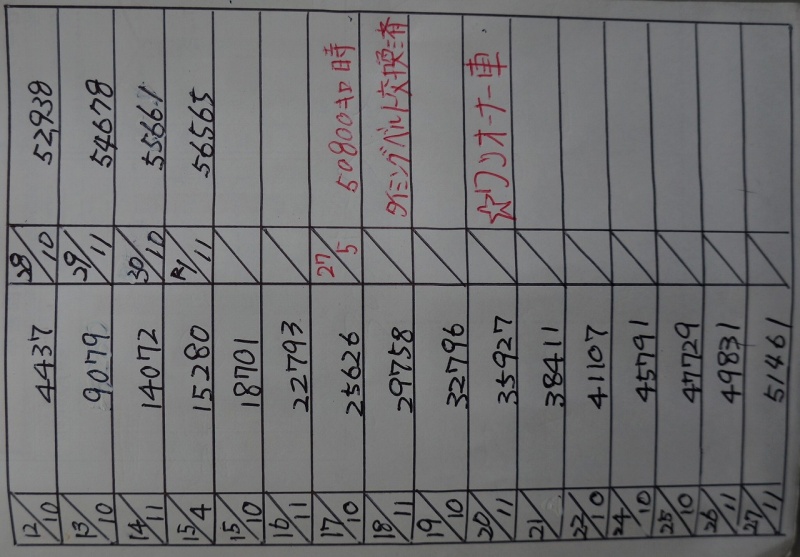 12/10 4437 28/10 52938
13/10 9079 29/11 54678
14/11 14072 30/10 55661
15/4 15280 R1/11 56565
15/10 18701
16/11 22793
17/10 25626 27/5 50800キロ時
18/11 29758 タイミングベルト交換済
19/10 32796
20/11 35927 ☆ワンオーナー車
21/ 38411
22/10 41107
24/10 45791
25/10 47729
26/11 49831
27/11 51461